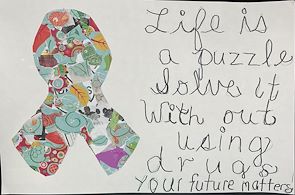 Life is
a puzzle
solve it
With out
using
drugs
your future matters